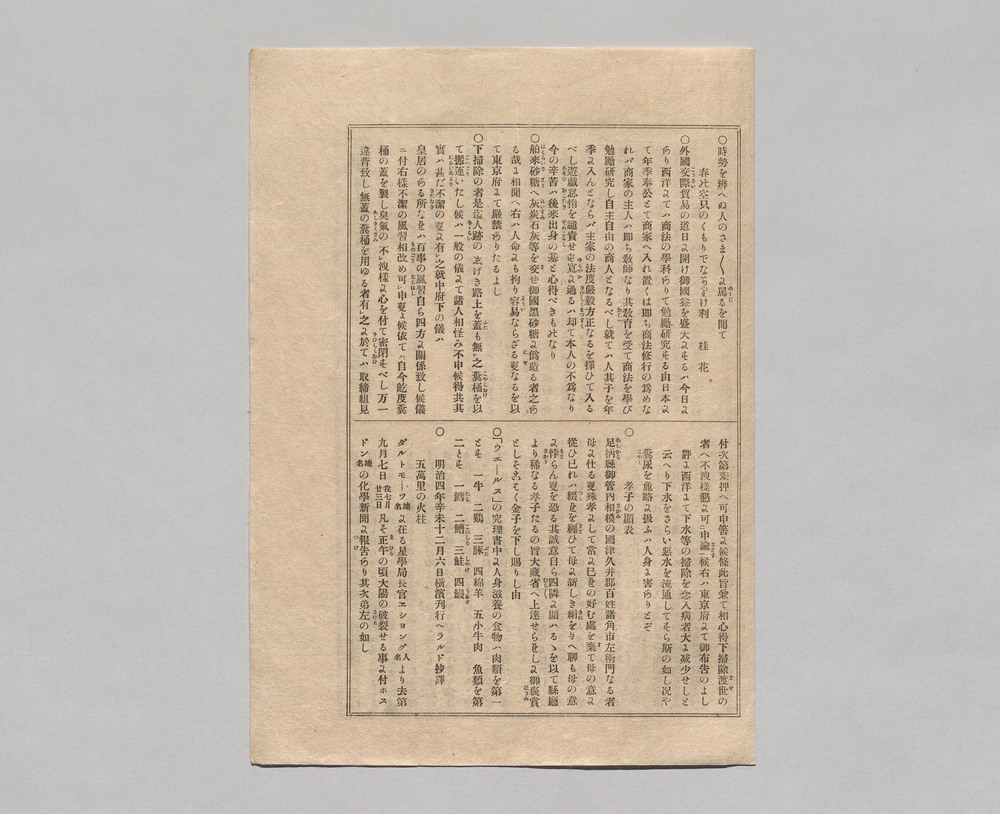 ○時勢を辨へぬ人のさま〳〵よ罵るを聞て
春此空只のくもりでなうまけ利　桂花
○外國交際貿易の道日よ開け御國益を盛大よもるハ今日よ
あり西洋よてハ商法の學科ありて勉勵研究もる由日本よ
て年季奉公とて商家へ入れ置くは即ち商法修行の爲めな
れバ商家の主人ハ即ち敎師なり其敎育を受て商法を學び
勉勵研究し自主自由の商人となるべし就てハ人其子を年
季よ入んとならバ主家の法度嚴毅方正なるを擇ひて入る
べし遊戲怠惰を譴責せも寬よ過るハ却て本人の不爲なり
今の辛苦ハ後來出身の基と心得べきもれなり
○舶來砂糖へ灰炭石灰等を交せ御國黑砂糖よ僞造る者之あ
る哉よ相聞へ右ハ人命よも拘り容易ならざる叓なるを以
て東京府よて嚴禁ありたるよし
○下掃除の者是迄人跡の繁げき路上を蓋も無㆑之糞桶を以
て搬運いたし候ハ一般の儀よて諸人相怪み不申候得共其
實ハ甚だ不潔の叓よ有㆑之就中府下の儀ハ
皇居のある所なれバ百事の風習自ら四方よ關係致し候儀
ニ付右樣不潔の風習相改め可㆑申叓よ候依てハ自今屹度糞
桶の蓋を製し臭氣の不㆑洩樣よ心を付て密閉もべし万一
違背致し無蓋の糞桶を用ゆる者有㆑之よ於てハ取締組見
付次第差押へ可申筈よ候條此旨兼て相心得下掃除渡世の
者へ不洩樣懇よ可㆓申諭㆒候右ハ東京府よて御布告のよし
評よ西洋よて下水等の掃除を念入病者大よ減少せしと
云へり下水をさらい惡水を流通してもら斯の如し况や
糞尿を麁略よ扱ふハ人身よ害ありとぞ
○　孝子の顯表
足柄縣御管内相模の國津久井郡百姓諸角市左衛門なる者
母よ仕る叓殊孝よして常よ已れの好む處を棄て母の意よ
從ひ已れハ綴れを纒ひて母よ新しき絹をきへ聊も母の意
よ悖らん叓を恐る其誠意自ら四隣よ顯ハるゝを以て縣廳
より稀なる孝子たるの旨大藏省へ上達せられしよ御褒賞
としてそこもく金子を下し賜りし由
○「ウエールス」の究理書中よ人身滋養の食物ハ肉類を第一
とも　一牛　二鷄　三豚　四綿羊　五小牛肉　魚類を第
二とも　一鱈　二鰽　三鮭　四鰻
○　明治四年辛未十二月六日橫濱刋行ヘラルド抄譯
五萬里の火柱
ダルトモーツ地名よ在る星學局長官エションググ人名より去第
九月七日我七月廿三日凡そ正午の頃大陽の破裂せる事よ付ボス
ドン地名の化學新聞よ報告あり其次第左の如し